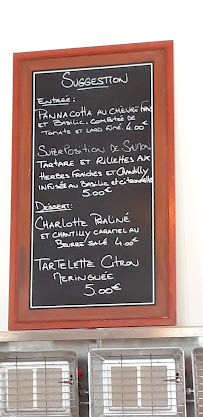 SUGGESTION
ENTRÉE :
PANNACOTTA AU CHÈVRE FRAIS
ET BASILIC, COMPOTÉE DE
TOMATE ET LARD FUMÉ. 4.00€
SUPERPOSITION DE SAUMON
TARTARE ET RILLETTES AUX
HERBES FRAICHES ET CHANTILLY
INFUSÉE AU BASILIC ET CITRONNELLE
5.00€
DESSERT:
CHARLOTTE PRALINÉ
ET CHANTILLY CARAMEL AU
BEURRE SALÉ 4.00€
TARTELETTE CITRON
MERINGUÉE
5.00€